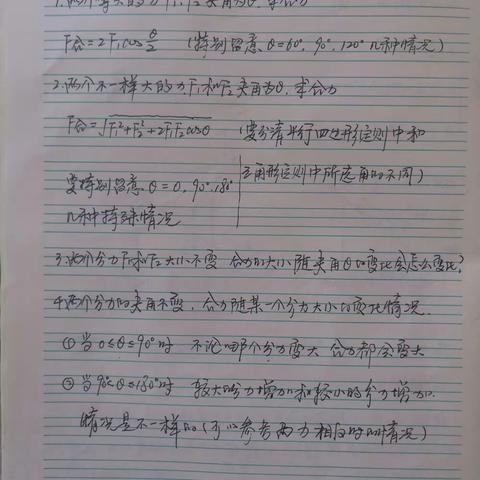 F合=2F₁cosθ/2 (特别留意:θ=60°,90°,120°几种情况)
2.两个不一样大的力F₁和F₂夹角为θ,求合力
F合=√F₁²+F₂²+2F₁F₂cosθ (要分清平行四边形定则中和
要特别留意:θ=0,90°,180° 三角形定则中所选角的不同)
几种特殊情况
3.两个分力F₁和F₂大小不变 合力的大小随夹角θ的变化会怎么变化?
4.两个分力的夹角不变,合力随某一个分力大小的变化情况.
①当0≤θ≤90°时 不论哪个分力变大 合力都会变大
②当90°<θ≤180°时 较大的分力增加和较小的分力增加.
情况是不一样的(可以参考两力相反时的情况)